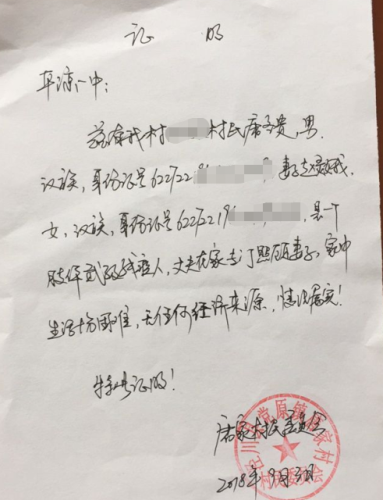 证 明
平凉一中:
兹有我村 村民席子贵,男,
汉族,身份证号622722 ,妻子赵
女,汉族,身份证号62272219 ,是一个
肢体 残疾人,丈夫在家专门照顾妻子,家中
生活十分困难,无任何经济来源,情况属实!
特此证明!
席家村民委员会
2018年9月3日